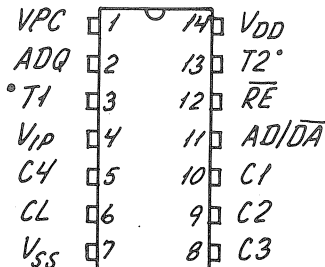 VPC 1 14 V_DD
ADQ 2 13 T2°
°T1 3 12 R̅E̅
V_IP 4 11 AD/D̅A̅
C4 5 10 C1
CL 6 9 C2
V_SS 7 8 C3